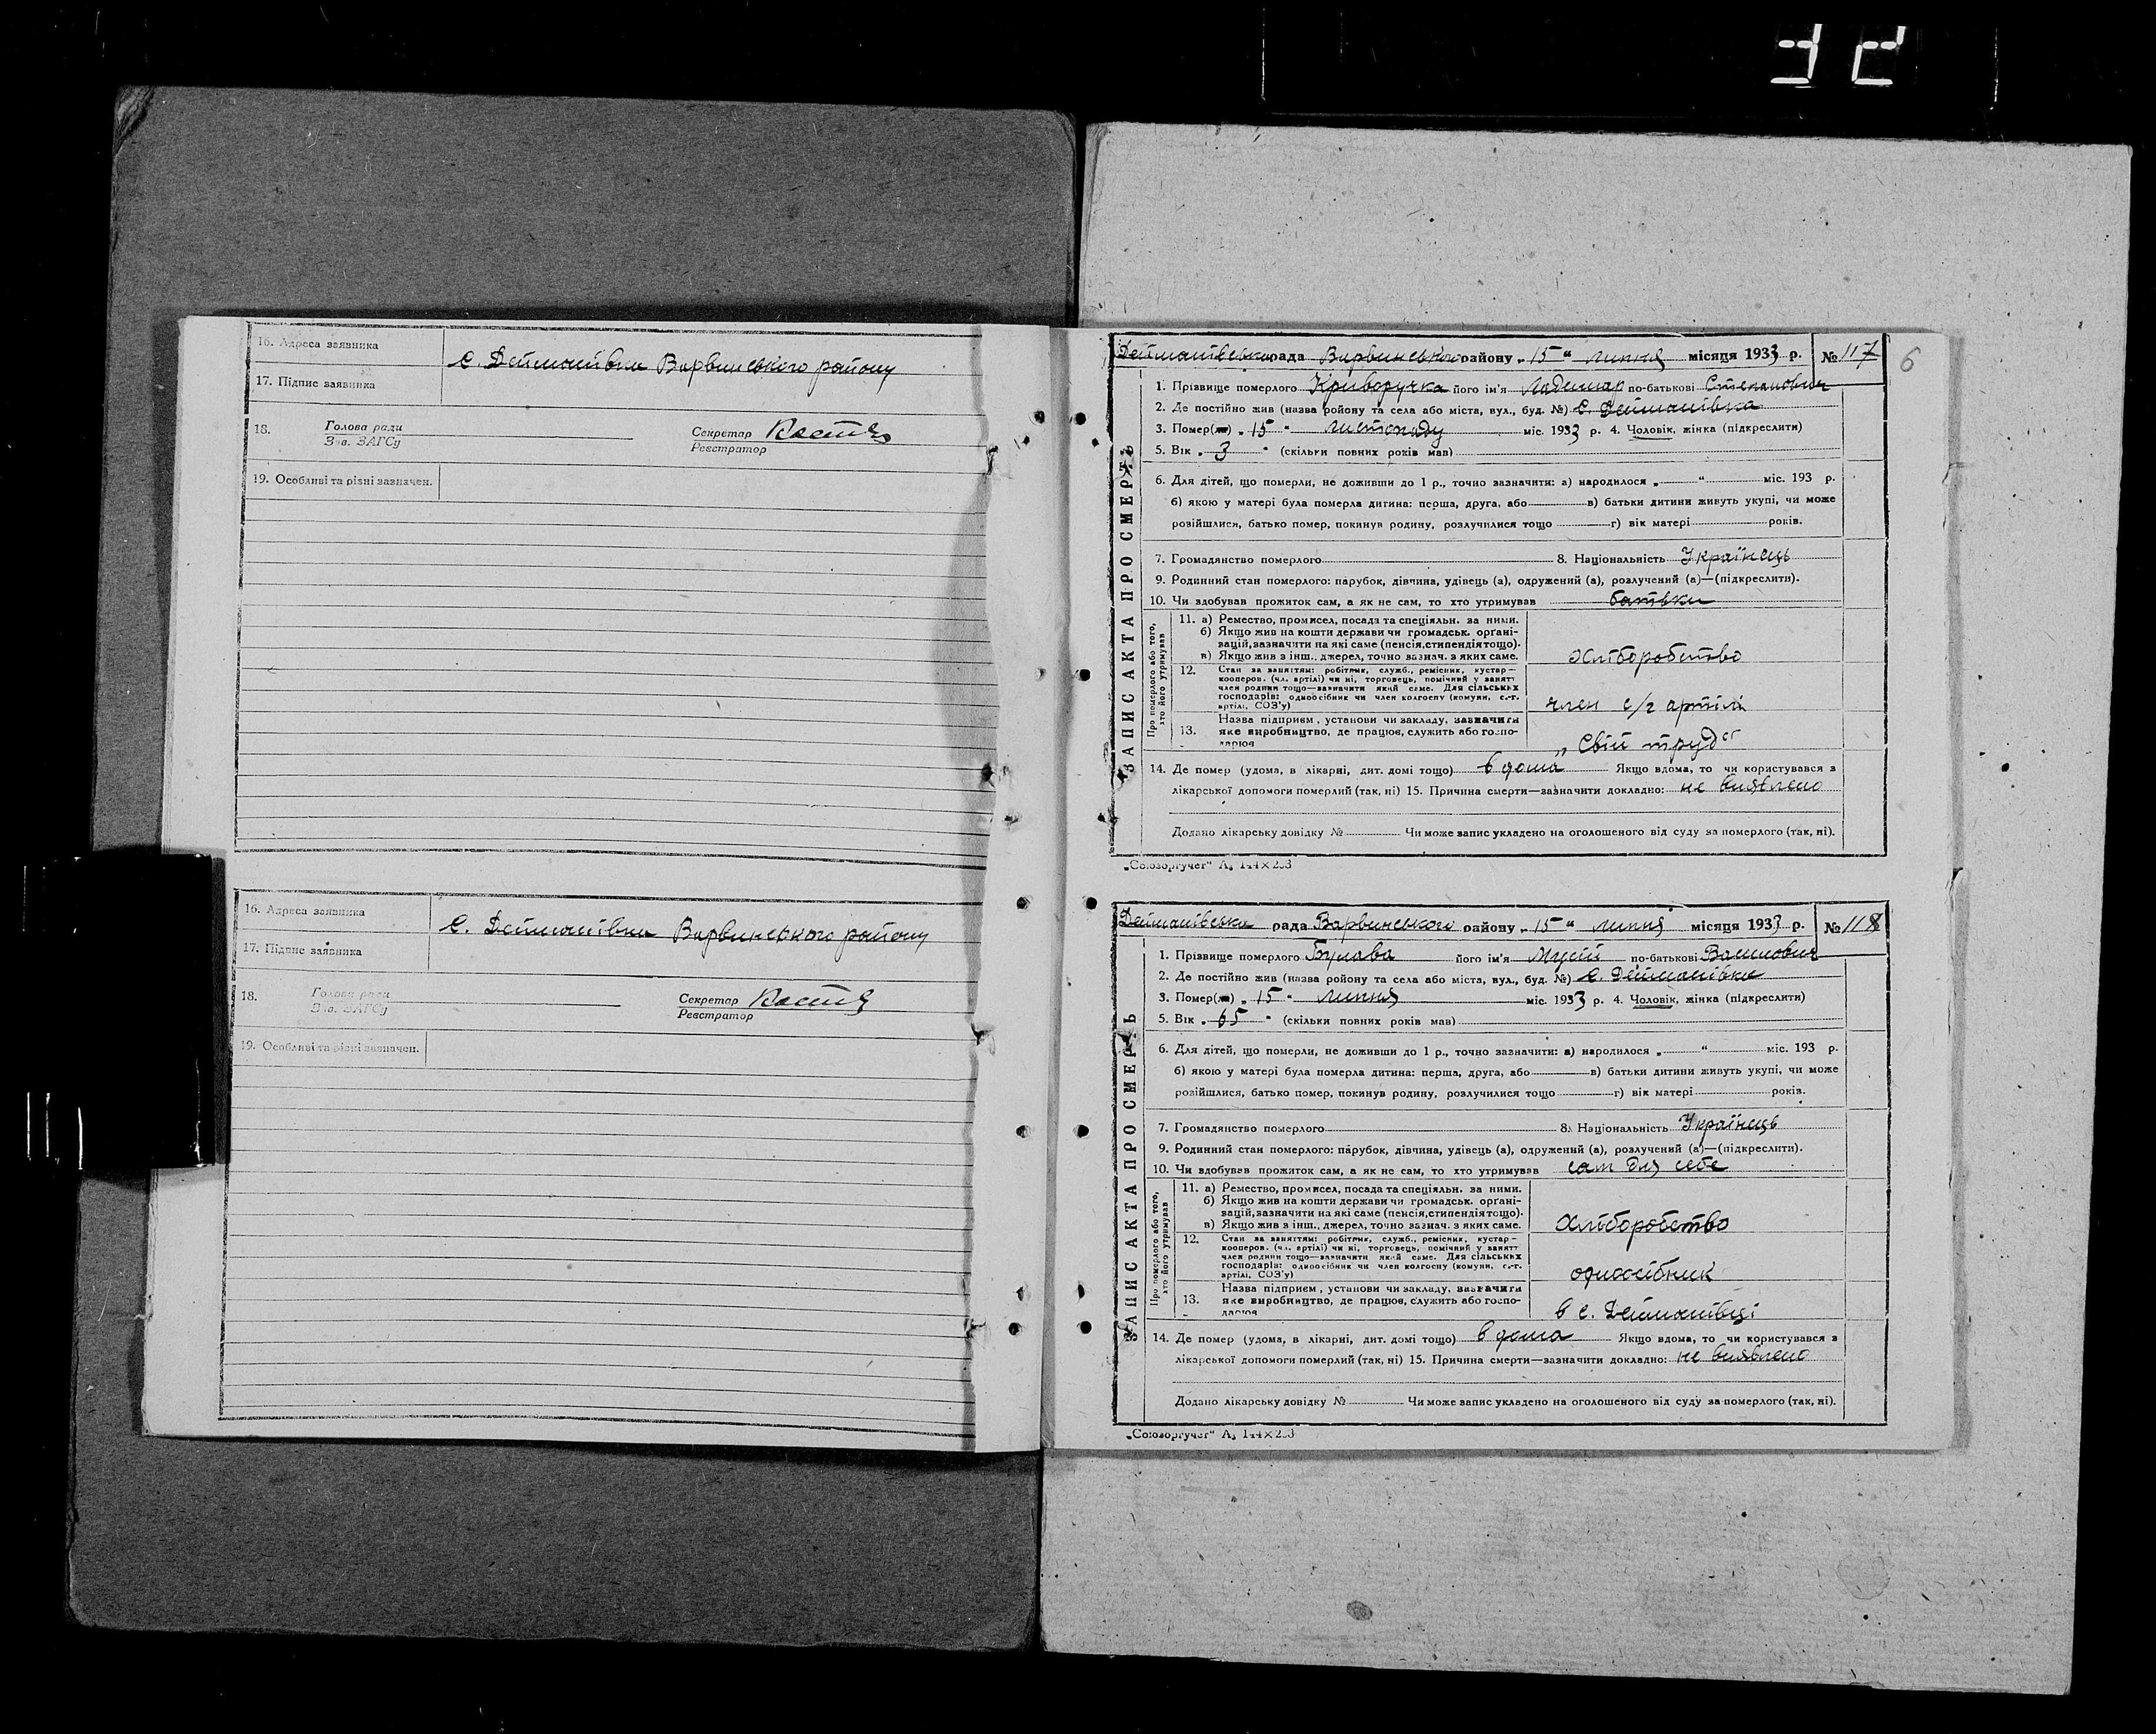 32
16. Адреса заявника
с. Дейманівка Варвинського району
17. Підпис заявника
18. Голова ради
Зав. ЗАГСу
Секретар
Реєстратор
19. Особливі та різні зазначен.
16. Адреса заявника
с. Дейманівка Варвинського району
17. Підпис заявника
18. Голова ради
Зав. ЗАГСу
Секретар
Реєстратор
19. Особливі та різні зазначен.
6
ЗАПИС АКТА ПРО СМЕРТЬ
Дейманівська рада Варвинського району „15“ липня місяця 1933 р. № 117
1. Прізвище померлого Криворучка його ім'я по-батькові Степанович
2. Де постійно жив (назва району та села або міста, вул., буд. №) с. Дейманівка
3. Помер(ла) „15“ листопаду міс. 1933 р. 4. Чоловік, жінка (підкреслити)
5. Вік „3“ (скільки повних років мав)
6. Для дітей, що померли, не доживши до 1 р., точно зазначити: а) народилося „ “ міс. 193 р.
б) якою у матері була померла дитина: перша, друга, або в) батьки дитини живуть укупі, чи може
розійшлися, батько помер, покинув родину, розлучилися тощо г) вік матері років.
7. Громадянство померлого 8. Національність Українець
9. Родинний стан померлого: парубок, дівчина, удівець (а), одружений (а), розлучений (а)—(підкреслити).
10. Чи здобував прожиток сам, а як не сам, то хто утримував батьки
Про померлого або того, хто його утримував
11. а) Ремество, промисел, посада та спеціяльн. за ними.
б) Якщо жив на кошти держави чи громадськ. органі-
зацій, зазначити на які саме (пенсія, стипендія тощо).
в) Якщо жив з інш. джерел, точно зазнач. з яких саме.
хліборобство
12. Стан за заняттям: робітник, служб., ремісник, кустар—
кооперов. (чл. артілі) чи ні, торговець, помічний у занятт
член родини тощо—зазначити який саме. Для сільських
господарів: одноосібник чи член колгоспу (комуни, с.-г.
артілі, СОЗ'у)
член с/г артілі
13. Назва підприєм., установи чи закладу, зазначити
яке виробництво, де працює, служить або госпо-
дарює
„Свій труд“
14. Де помер (удома, в лікарні, дит. домі тощо) в дома Якщо вдома, то чи користувався з
лікарської допомоги померлий (так, ні) 15. Причина смерти—зазначити докладно: не виявлено
Додано лікарську довідку № Чи може запис укладено на оголошеного від суду за померлого (так, ні).
„Союзоргучет“ А₅ 144×203
ЗАПИС АКТА ПРО СМЕРТЬ
Дейманівська рада Варвинського району „15“ липня місяця 1933 р. № 118
1. Прізвище померлого Булава його ім'я Мусій по-батькові Васильович
2. Де постійно жив (назва району та села або міста, вул., буд. №) с. Дейманівка
3. Помер(ла) „15“ липня міс. 1933 р. 4. Чоловік, жінка (підкреслити)
5. Вік „65“ (скільки повних років мав)
6. Для дітей, що померли, не доживши до 1 р., точно зазначити: а) народилося „ “ міс. 193 р.
б) якою у матері була померла дитина: перша, друга, або в) батьки дитини живуть укупі, чи може
розійшлися, батько помер, покинув родину, розлучилися тощо г) вік матері років.
7. Громадянство померлого 8. Національність Українець
9. Родинний стан померлого: парубок, дівчина, удівець (а), одружений (а), розлучений (а)—(підкреслити).
10. Чи здобував прожиток сам, а як не сам, то хто утримував сам для себе
Про померлого або того, хто його утримував
11. а) Ремество, промисел, посада та спеціяльн. за ними.
б) Якщо жив на кошти держави чи громадськ. органі-
зацій, зазначити на які саме (пенсія, стипендія тощо).
в) Якщо жив з інш. джерел, точно зазнач. з яких саме.
хліборобство
12. Стан за заняттям: робітник, служб., ремісник, кустар—
кооперов. (чл. артілі) чи ні, торговець, помічний у занятт
член родини тощо—зазначити який саме. Для сільських
господарів: одноосібник чи член колгоспу (комуни, с.-г.
артілі, СОЗ'у)
одноосібник
13. Назва підприєм., установи чи закладу, зазначити
яке виробництво, де працює, служить або госпо-
дарює
в с. Дейманівці
14. Де помер (удома, в лікарні, дит. домі тощо) в дома Якщо вдома, то чи користувався з
лікарської допомоги померлий (так, ні) 15. Причина смерти—зазначити докладно: не виявлено
Додано лікарську довідку № Чи може запис укладено на оголошеного від суду за померлого (так, ні).
„Союзоргучет“ А₅ 144×203